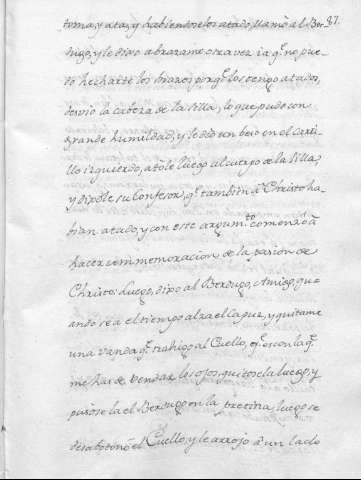 87.
toma, y ata, y habiendoselos atado, llamò al Ber=
dugo, y le dixo abrazame otra vez ià q.e no pue-
do hecharte los brazos porq.e los tengo atados,
desviò la cabeza de la silla, lo que pudo con
grande humildad, y le diò un beso en el carri-
llo izquierdo, atòle luego al cuerpo de la silla,
y dixole su Confesor, q.e tambien à Christo ha-
bian atado, y con este argum.to comenzò à
hacer commemoracion de la pasion de
Christo: Luego, dixo al Berdugo, Amigo, qu-
ando sea el tiempo alza el capuz, y quitame
una vanda q.e trahigo al Cuello, q.e es con la q.e
me has de vendar los ojos, quitosela luego, y
pusosela el Berdugo en la pretina, luego se
desabotonò el Cuello, y le arrojò à un lado